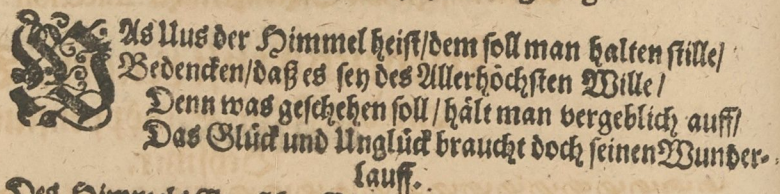 WAs Uns der Himmel heist/dem soll man halten stille/
Bedencken/daß es sey des Allerhöchsten Wille/
Denn was geschehen soll/hält man vergeblich auff/
Das Glück und Unglück braucht doch seinen Wunder-
lauff.